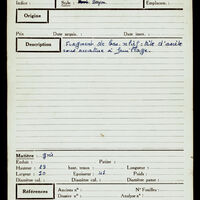 Indice : Style : Bayon Emplacem. :
Origine
Prix Date acquis. : Date inscr. :
Description Fragment de bas-relief : tête d'ascète
sous arcature à Jean Plage.
Matière : grès
Enduit : Patine :
Hauteur : 23 haut. tenon : Longueur :
Largeur : 20 Epaisseur : 11 Fruit :
Diamètre col. : Diamètre cal. : Diamètre panse :
Références Anciens nos : N° Fouilles :
Dossier n° : Analyse n° :